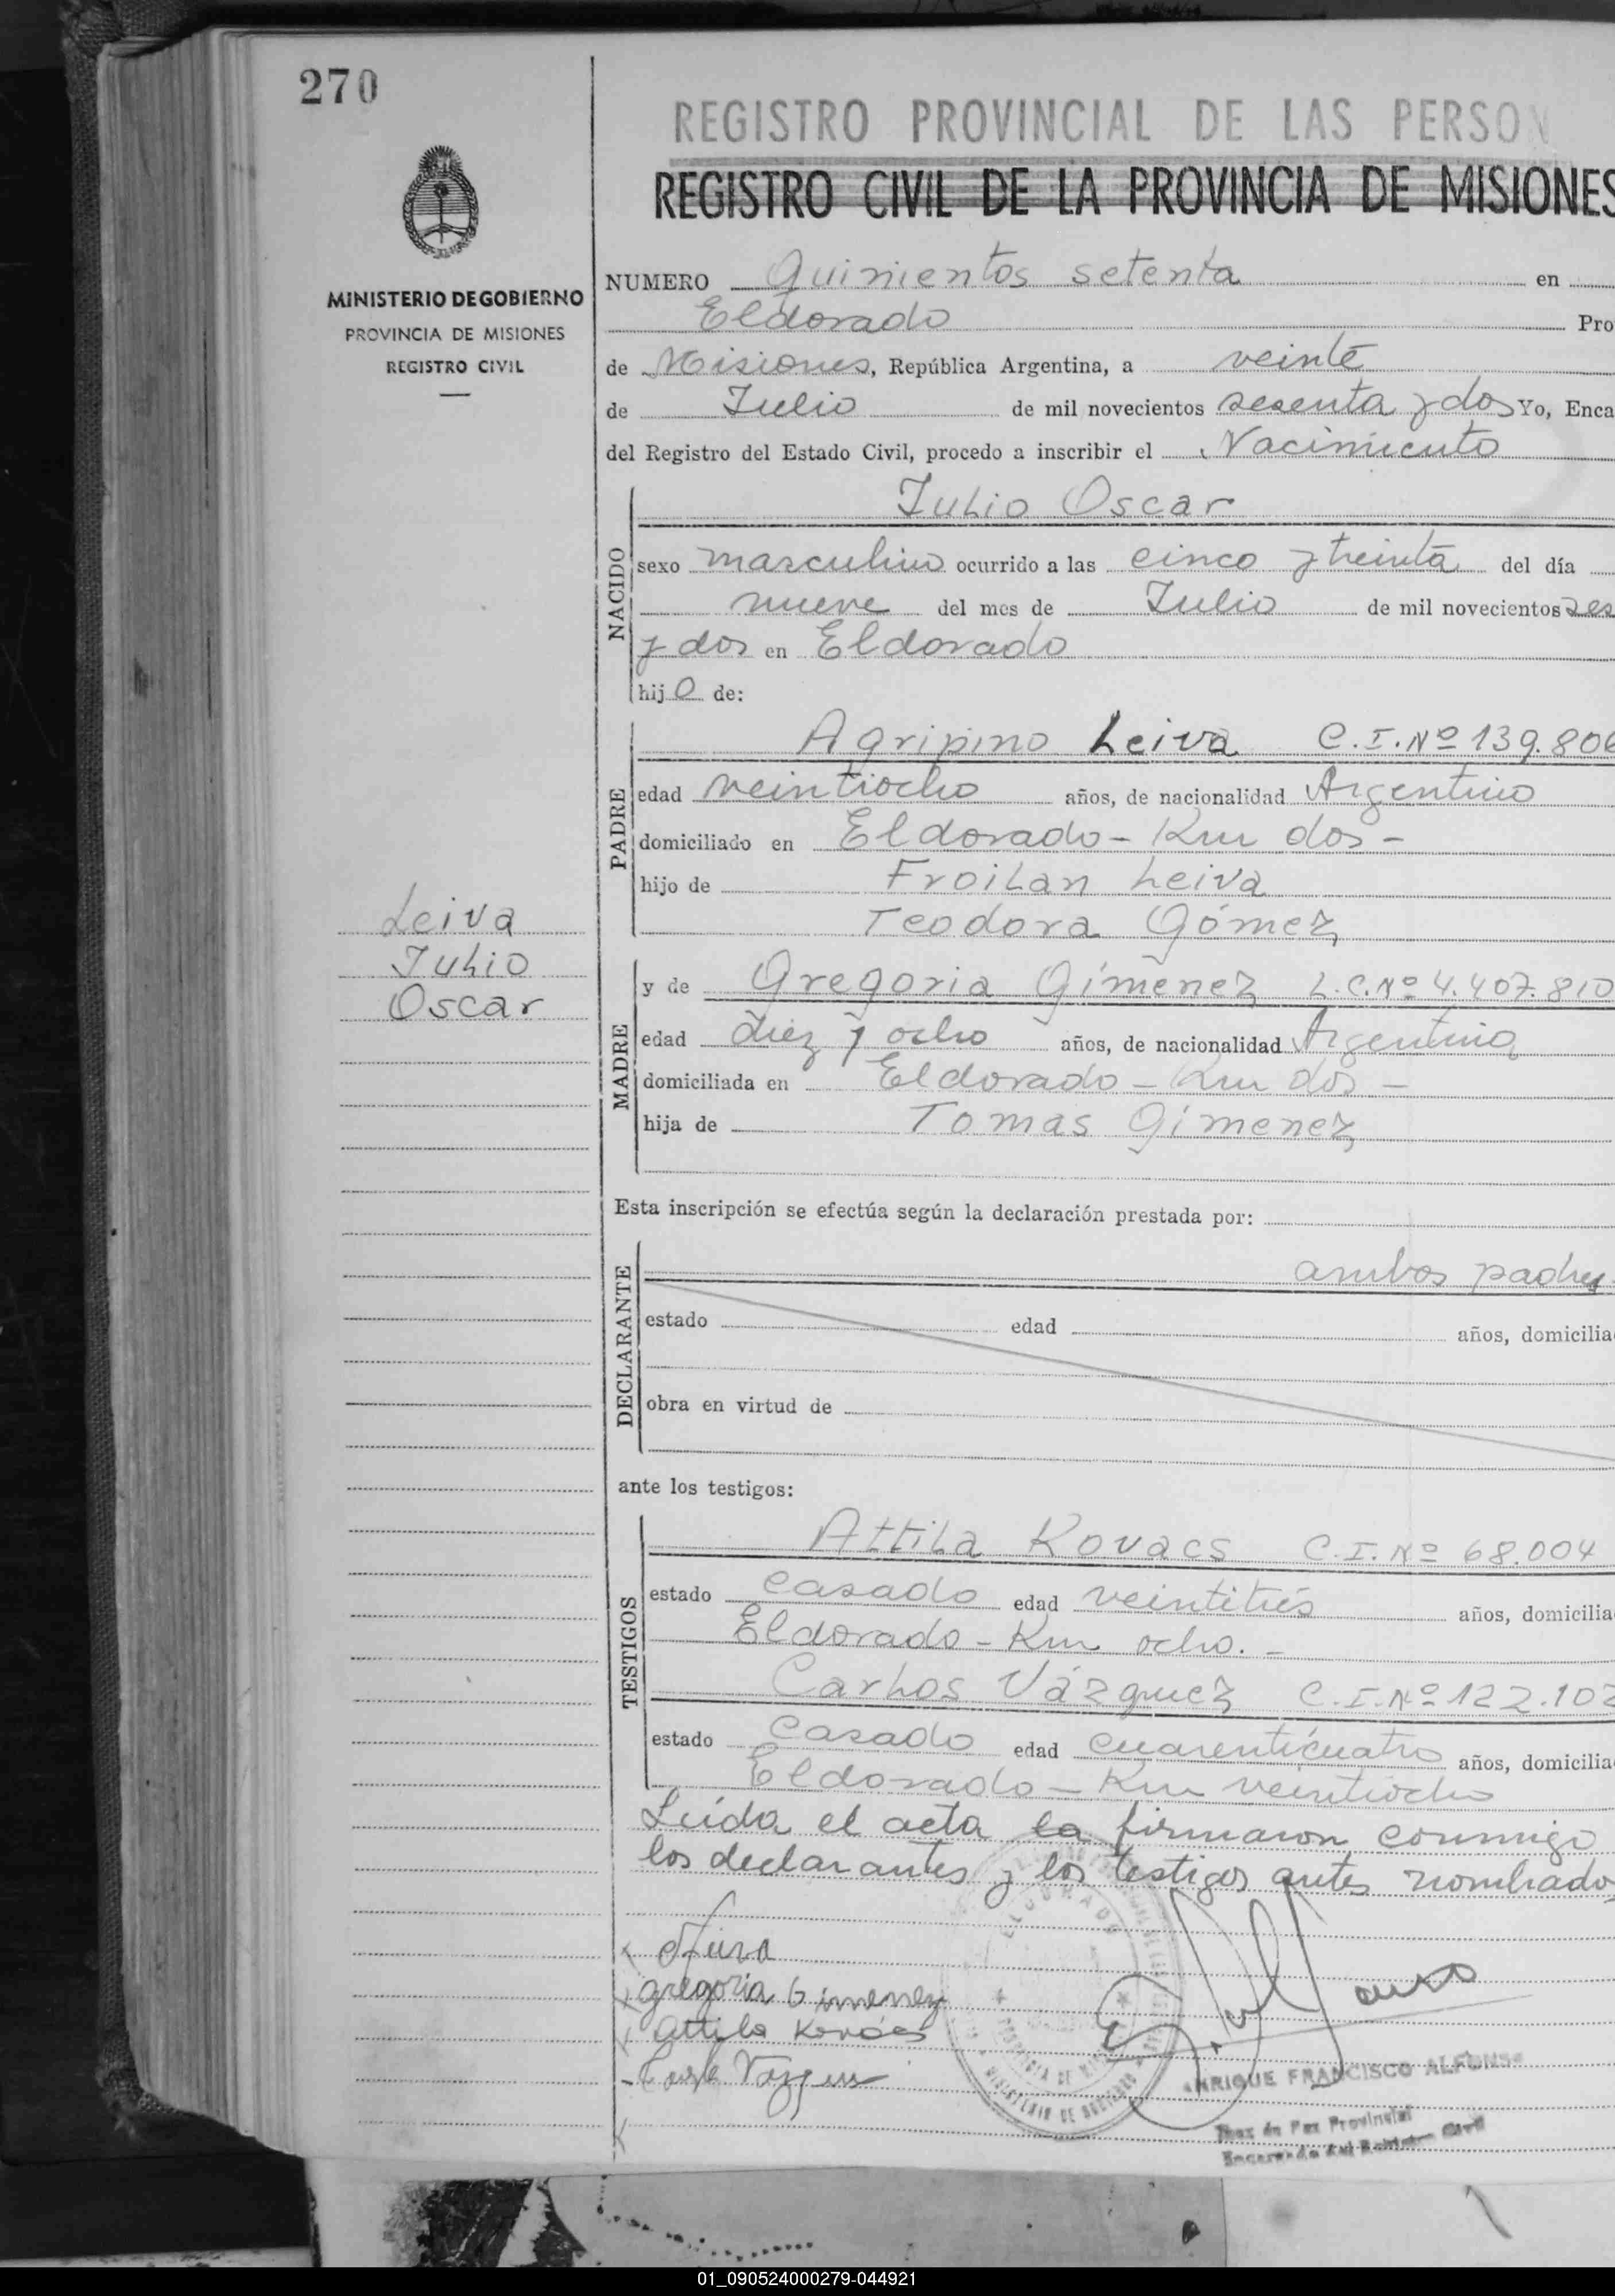 270
REGISTRO PROVINCIAL DE LAS PERSON
REGISTRO CIVIL DE LA PROVINCIA DE MISIONES
MINISTERIO DE GOBIERNO
PROVINCIA DE MISIONES
REGISTRO CIVIL
NUMERO Quinientos setenta en
Eldorado Pro
de Misiones, República Argentina, a veinte
de Julio de mil novecientos sesenta y dos Yo, Enca
del Registro del Estado Civil, procedo a inscribir el Nacimiento
NACIDO
Julio Oscar
sexo masculino ocurrido a las cinco y treinta del día
nueve del mes de Julio de mil novecientos ses
y dos en Eldorado
hijo de:
PADRE
Agripino Leiva C.I.Nº 139.806
edad veintiocho años, de nacionalidad Argentino
domiciliado en Eldorado - Km dos -
hijo de Froilan Leiva
Teodora Gómez
Leiva
Julio
Oscar
MADRE
y de Gregoria Gímenez L.C.Nº 4.407.810
edad diez y ocho años, de nacionalidad Argentina
domiciliada en Eldorado - Km dos -
hija de Tomas Gímenez
Esta inscripción se efectúa según la declaración prestada por:
DECLARANTE
ambos padres
estado edad años, domicilia
obra en virtud de
ante los testigos:
TESTIGOS
Attila Kovacs C.I.Nº 68.004
estado casado edad veintitrés años, domicilia
Eldorado - Km ocho. -
Carlos Vázquez C.I.Nº 122.102
estado casado edad cuarenticuatro años, domicilia
Eldorado - Km veintiocho
Leída el acta la firmaron conmigo
los declarantes y los testigos antes nombrados
gregoria Gimenez
Attila Kovács
ELDORADO
PROVINCIA DE MI
MINISTERIO DE GOBIERNO
NRIQUE FRANCISCO ALFONSO
Juez de Paz Provincial
Encargado del Registro Civil
01_090524000279-044921